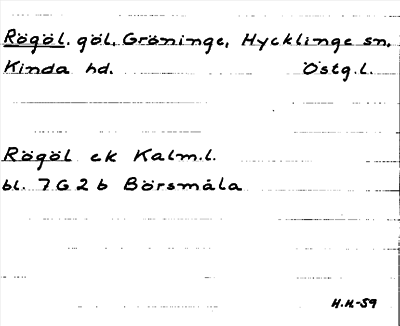 Rögöl. göl, Gröninge, Hycklinge sn,
Kinda hd. Östg.l.
Rögöl ek Kalm.l.
bl. 7G2b Börsmåla
H.H-59